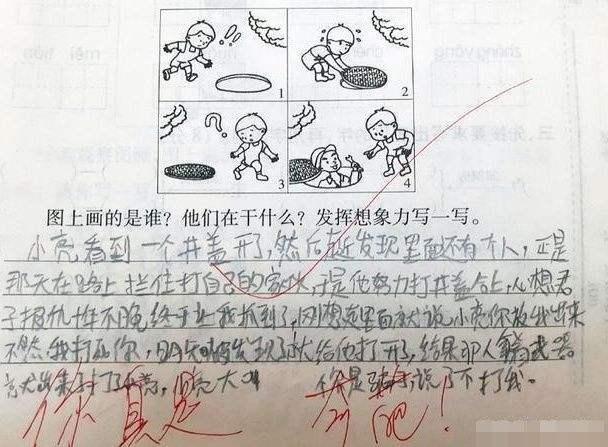 zhōng yāng
chē
měi
hòu
1
2
3
4
图上画的是谁？他们在干什么？发挥想象力写一写。
小亮看到一个井盖开了，然后走近发现里面还有个人，正是
那天在路上拦住打自己的家伙，于是他努力打井盖合上，心想君
子报仇十年不晚终于让我抓到了，刚想走里面就说小亮你放我出来
不然我打死你，小亮发现了就给他打开了，结果那人
出来打了小亮，小亮大叫 你是骗子说了不打我。
你真是 奇葩！